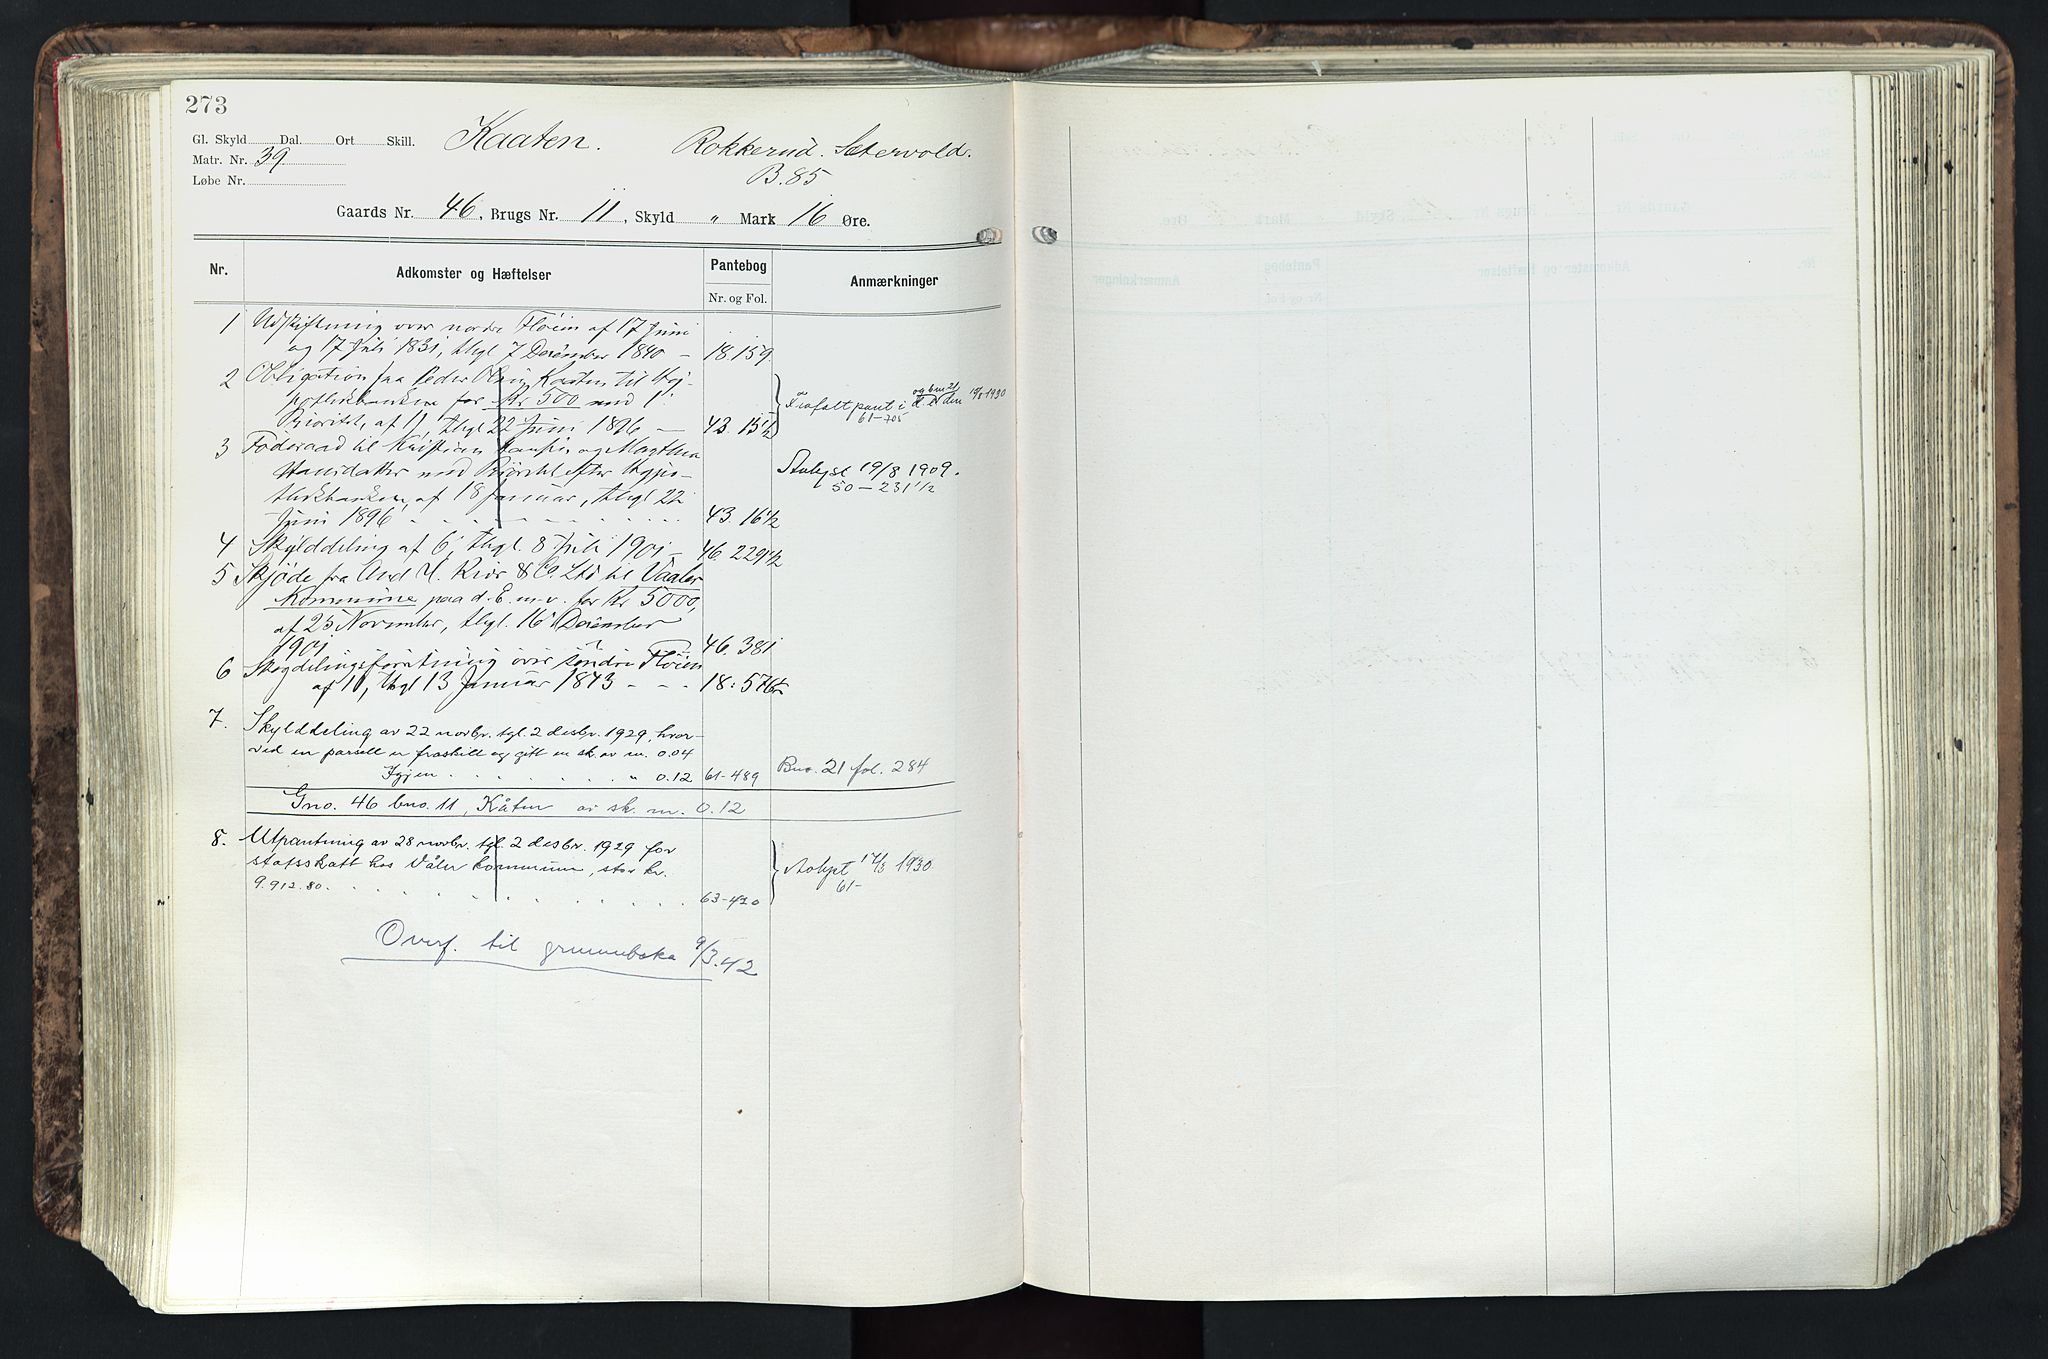 273
Gl. Skyld Dal. Ort Skill. Kaaten. Rokkerud. Sætervold.
Matr. Nr. 39 B. 85
Løbe Nr.
Gaards Nr. 46, Brugs Nr. 11, Skyld „ Mark 16 Øre.
Nr. Adkomster og Hæftelser Pantebog Anmærkninger
Nr. og Fol.
1 Udskiftning over nordre Fløien af 17 Juni
og 17 Juli 1831, thgl 7 December 1840 – 18.159
2 Obligation fra Peder Olsen Kaaten til Hy-
pothekbanken for Kr 500 med 1'
Prioritet, af 17, thgl 22 Juni 1896 — 43. 15 1/2
Frafalt pant i og bno 21 1930
61-705
3 Føderaad til Kristian Hansen og Magthea
Hansdatter med Prioritet efter Hypo-
thekbanken, af 18 Januar, thgl 22
Juni 1896 43. 16 1/2
Avlyst 19/8 1909.
50 – 231 1/2
4 Skylddeling af 6, thgl. 8 Juli 1901 – 46. 229 1/2
5 Skjøde fra And H. Kiær & Co. Ltd til Vaaler
Kommune paa d. E. m. v. for Kr 5000,
af 25 November, thgl. 16 December
1901 46. 381
6 Skogdelingsforretning over søndre Fløien
af 11, thgl 13 Januar 1843 - - - 18: 576
7. Skylddeling av 22 novbr. tgl. 2 desbr. 1929, hvor-
ved en parsell er fraskilt og gitt en sk. av m. 0.04
Igjen . . . . . . . " 0.12 61-489 Bno. 21 fol. 284
Gno. 46 bno. 11, Kåten av sk. m. 0.12
8. Utpantning av 28 novbr. tgl. 2 desbr. 1929 for
statsskatt hos Våler kommune, stor kr.
9.912.80. 63-420
Avlyst 17/3 1930
61-
Overf. til grunnboka 9/3.42